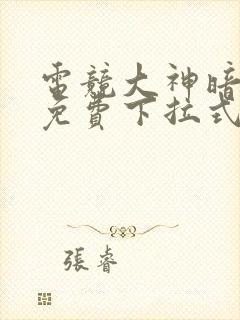 電競大神暗
免費下拉式
張睿